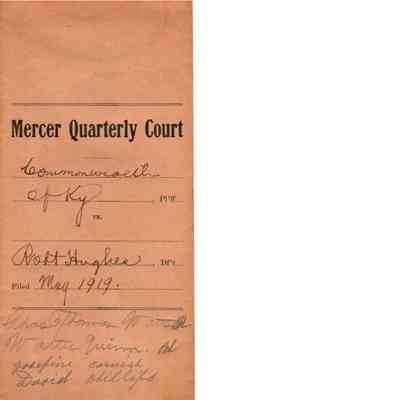 Mercer Quarterly Court
Commonwealth
of Ky , Pl'ff.
vs.
Robt Hughes , Def.
Filed May 1919.
Thomas
Quinn.
David Phillips